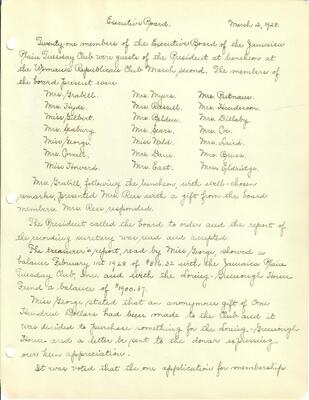 Executive Board. March 2, 1928.
Twenty-one members of the Executive Board of the Jamaica
Plain Tuesday Club were guests of the President at luncheon at
the Women's Republican Club March second. The members of
the board present were
Mrs. Grabill. Mrs. Myers. Mrs. Putnam.
Mrs. Hyde. Mrs. Russell. Mrs. Henderson.
Miss Gilbert. Mrs. Mrs. Dillaby
Mrs. Seabury Mrs. Sears. Mrs. Cox.
Miss George. Miss Wild. Mrs. Laird.
Mrs. Cowell. Mrs. Mrs. Bruce.
Miss Mrs. East. Mrs. Eldridge.
Mrs. Grabill, following the luncheon, with well-chosen
remarks, presented Mrs. Rees with a gift from the board
members. Mrs. Rees responded.
The President called the board to order and the report of
the recording secretary was read and accepted.
The treasurer's report, read by Miss George, showed a
balance February, 1st 1928 of $816.32 with the Jamaica Plain
Tuesday Club, Inc. and with the Loring-Greenough House
Fund a balance of $1900.87.
Miss George stated that an anonymous gift of One
Hundred Dollars had been made to the Club and it
was decided to purchase something for the Loring-Greenough
House and a letter be sent to the donor expressing
our keen appreciation.
It was voted that the one application for membership